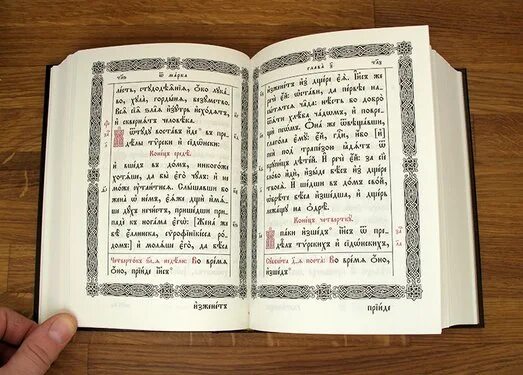 Ѿ ма́рка
ле́сть, стꙋдодѣѧ́нїѧ, ѻ҆́ко лꙋка́-
во, хꙋла̀, горды́нѧ, безꙋ́мство.
Всѧ̑ сїѧ̑ ѕла̑ѧ и҆знꙋ́трь и҆схо́дѧтъ,
и҆ сквернѧ́тъ человѣ́ка.
И҆ ѿтꙋ́дꙋ воста́въ и҆́де въ пре-
дѣ́лы тѵ́рски и҆ сїдѡ́нски:
Коне́цъ средѣ̀.
и҆ вше́дъ въ до́мъ, никого́же
хотѧ́ше, да бы̀ є҆го̀ чꙋ́лъ: и҆ не
мо́же ᲂу҆таи́тисѧ. Слы́шавши бо
ѡ҆ не́мъ жена̀, є҆ѧ́же дщѝ и҆мѧ́-
ше дꙋ́хъ нечи́стъ, прише́дши припа-
дѐ къ нога́ма є҆гѡ̀: Жена́ же
бѣ̀ є҆́ллинска, сѷрофїнїкі́сса ро́-
домъ: и҆ молѧ́ше є҆го̀, да бѣ́са
Во вре́мѧ
ѻ҆́но, прїи́де
и҆зжене́тъ
Глава̀ з҃
и҆зжене́тъ и҆з̾ дще́ре є҆ѧ̀. І҆и҃съ же
речѐ є҆́й: ѡ҆ста́ви, да пе́рвѣе на-
сы́тѧтсѧ ча̑да: нѣ́сть бо добро̀
ѿѧ́ти хлѣ́ба ча́дѡмъ, и҆ поврещѝ
псѡ́мъ. Ѻ҆на́ же ѿвѣща́вши,
глаго́ла є҆мꙋ̀: є҆́й, гдⷭ҇и, и҆́бо [и҆]
псѝ под̾ трапе́зою ꙗ҆дѧ́тъ ѿ
крꙋпи́цъ дѣ́тей. И҆ речѐ є҆́й: за сїѐ
сло́во, и҆дѝ, и҆зы́де бѣ́съ и҆з̾ дще́ре
твоеѧ̀. И҆ ше́дши въ до́мъ сво́й,
ѡ҆брѣ́те бѣ́са и҆зше́дша, и҆ дще́рь
лежа́щꙋ на ѻ҆дрѣ̀.
Коне́цъ четверткꙋ̀.
И҆ па́ки и҆зше́дъ і҆и҃съ ѿ пре-
дѣ̑лъ тѵ́рскихъ и҆ сїдѡ́нскихъ,
Во вре́мѧ
ѻ҆́но, и҆зше́дъ
прїи́де